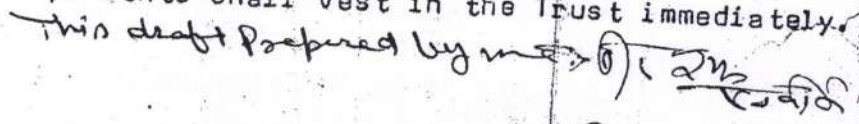 shall vest in the Trust immediately.
This draft Prepared by me